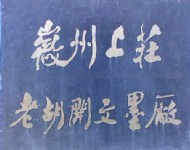 徽州上莊
老胡開文墨廠